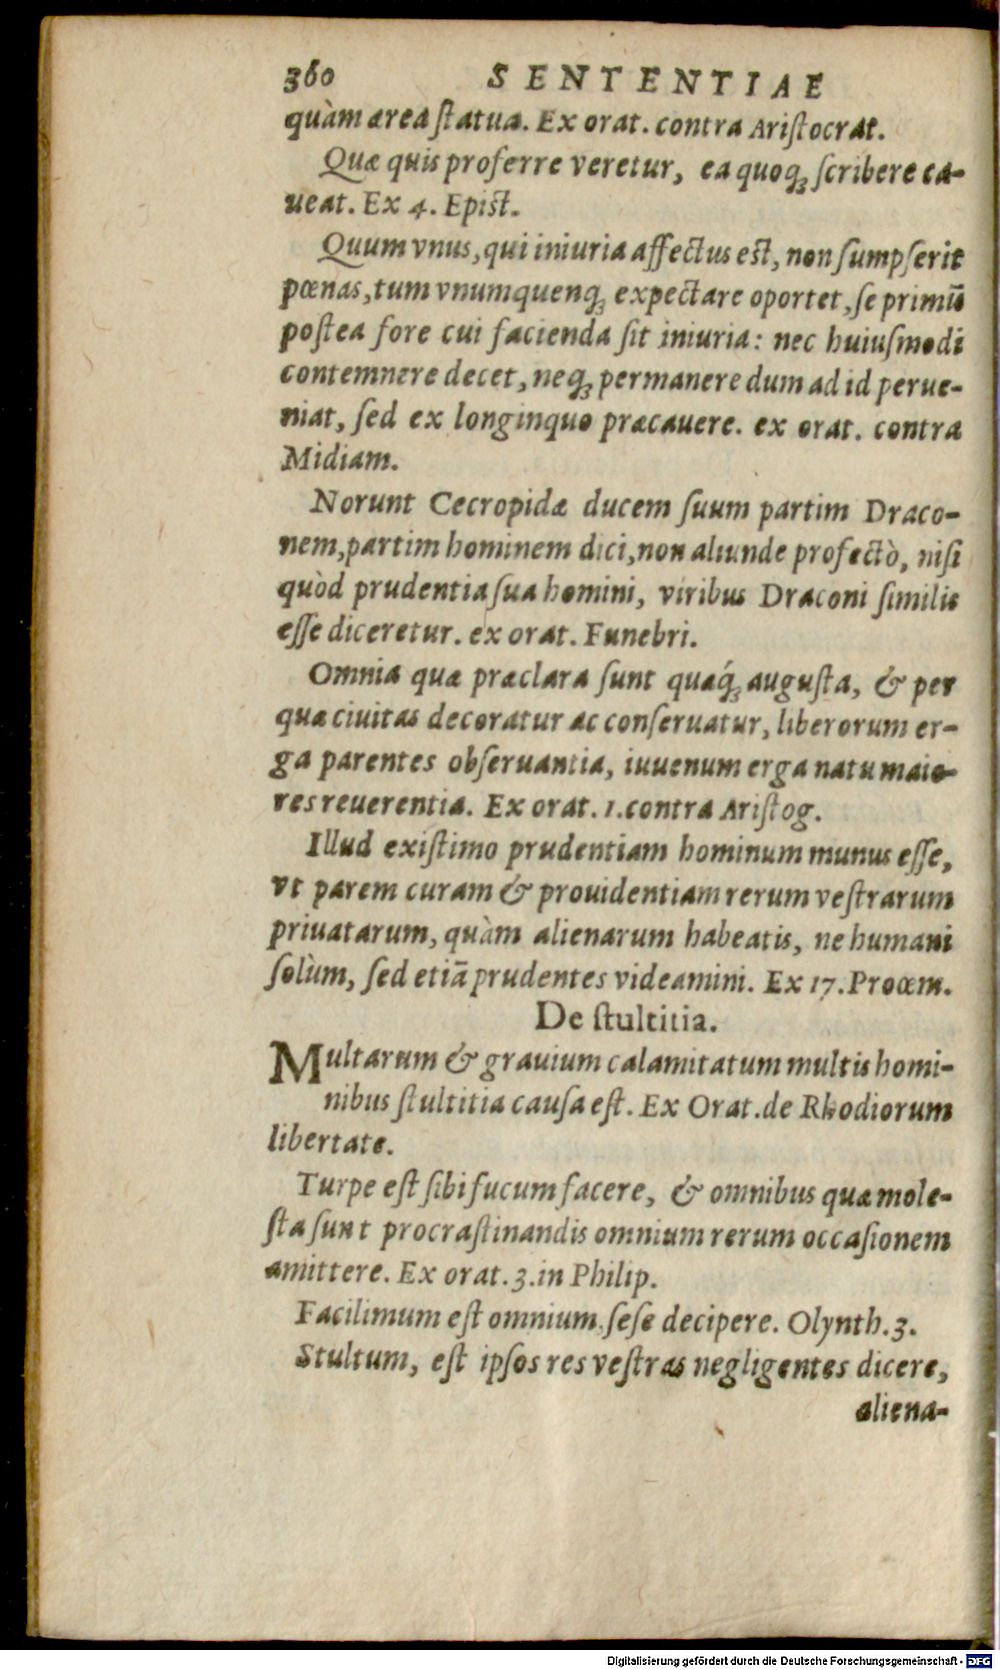 360 SENTENTIAE
quàm ærea ſtatua. Ex orat. contra Ariſtocrat.
Quæ quis proferre veretur, ea quoq; ſcribere ca-
ueat. Ex 4. Epiſt.
Quum vnus, qui iniuria affectus eſt, non ſumpſerit
pœnas, tum vnumquenq; expectare oportet, ſe primū
poſtea fore cui facienda ſit iniuria: nec huiuſmodi
contemnere decet, neq; permanere dum ad id perue-
niat, ſed ex longinquo præcauere. ex orat. contra
Midiam.
Norunt Cecropidæ ducem ſuum partim Draco-
nem, partim hominem dici, non aliunde profectò, niſi
quòd prudentia ſua homini, viribus Draconi ſimilis
eſſe diceretur. ex orat. Funebri.
Omnia quæ præclara ſunt quæq́; auguſta, & per
quæ ciuitas decoratur ac conſeruatur, liberorum er-
ga parentes obſeruantia, iuuenum erga natu maio-
res reuerentia. Ex orat. 1. contra Ariſtog.
Illud exiſtimo prudentiam hominum munus eſſe,
vt parem curam & prouidentiam rerum veſtrarum
priuatarum, quàm alienarum habeatis, ne humani
ſolùm, ſed etiā prudentes videamini. Ex 17. Proœm.
De ſtultitia.
Multarum & grauium calamitatum multis homi-
nibus ſtultitia cauſa eſt. Ex Orat. de Rhodiorum
libertate.
Turpe eſt ſibi fucum facere, & omnibus quæ mole-
ſta ſunt procraſtinandis omnium rerum occaſionem
amittere. Ex orat. 3. in Philip.
Facilimum eſt omnium, ſeſe decipere. Olynth. 3.
Stultum, eſt ipſos res veſtras negligentes dicere,
aliena-
Digitalisierung gefördert durch die Deutsche Forschungsgemeinschaft - DFG